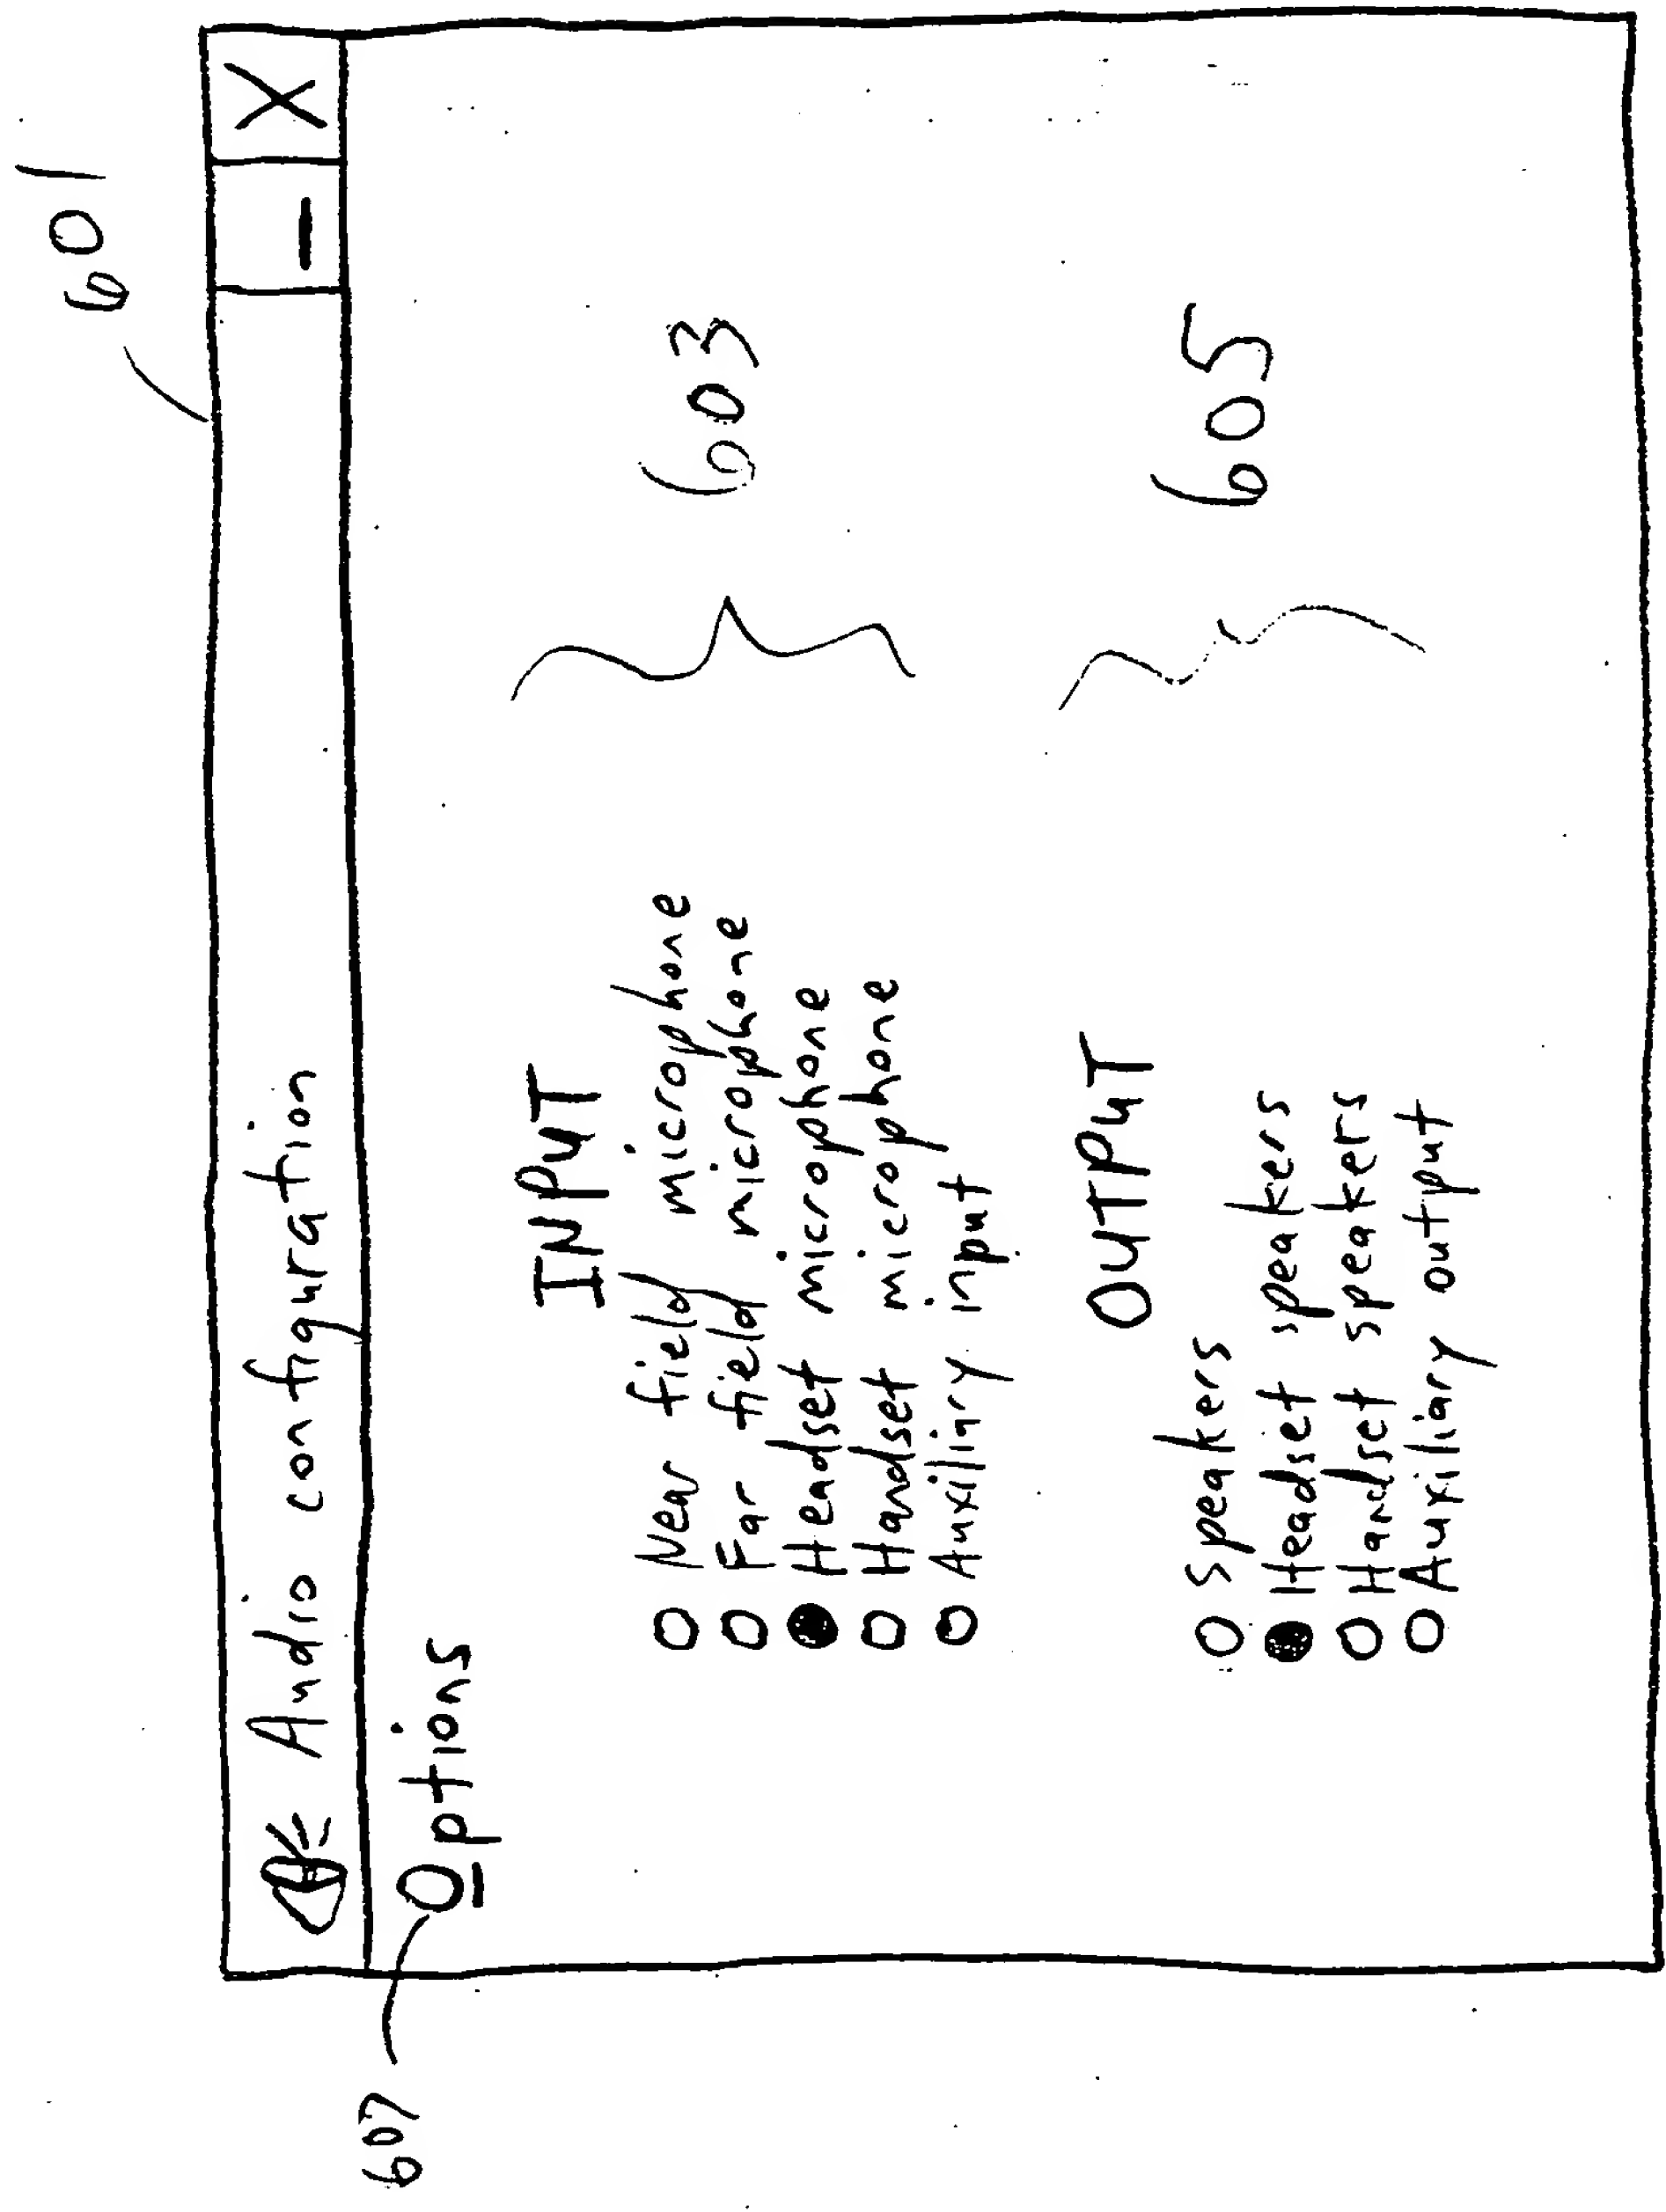 601
Audio configuration
607
Options
INPUT
Near field microphone
Far field microphone
Headset microphone
Handset microphone
Auxiliary input
603
OUTPUT
Speakers
Headset speakers
Handset speakers
Auxiliary output
605